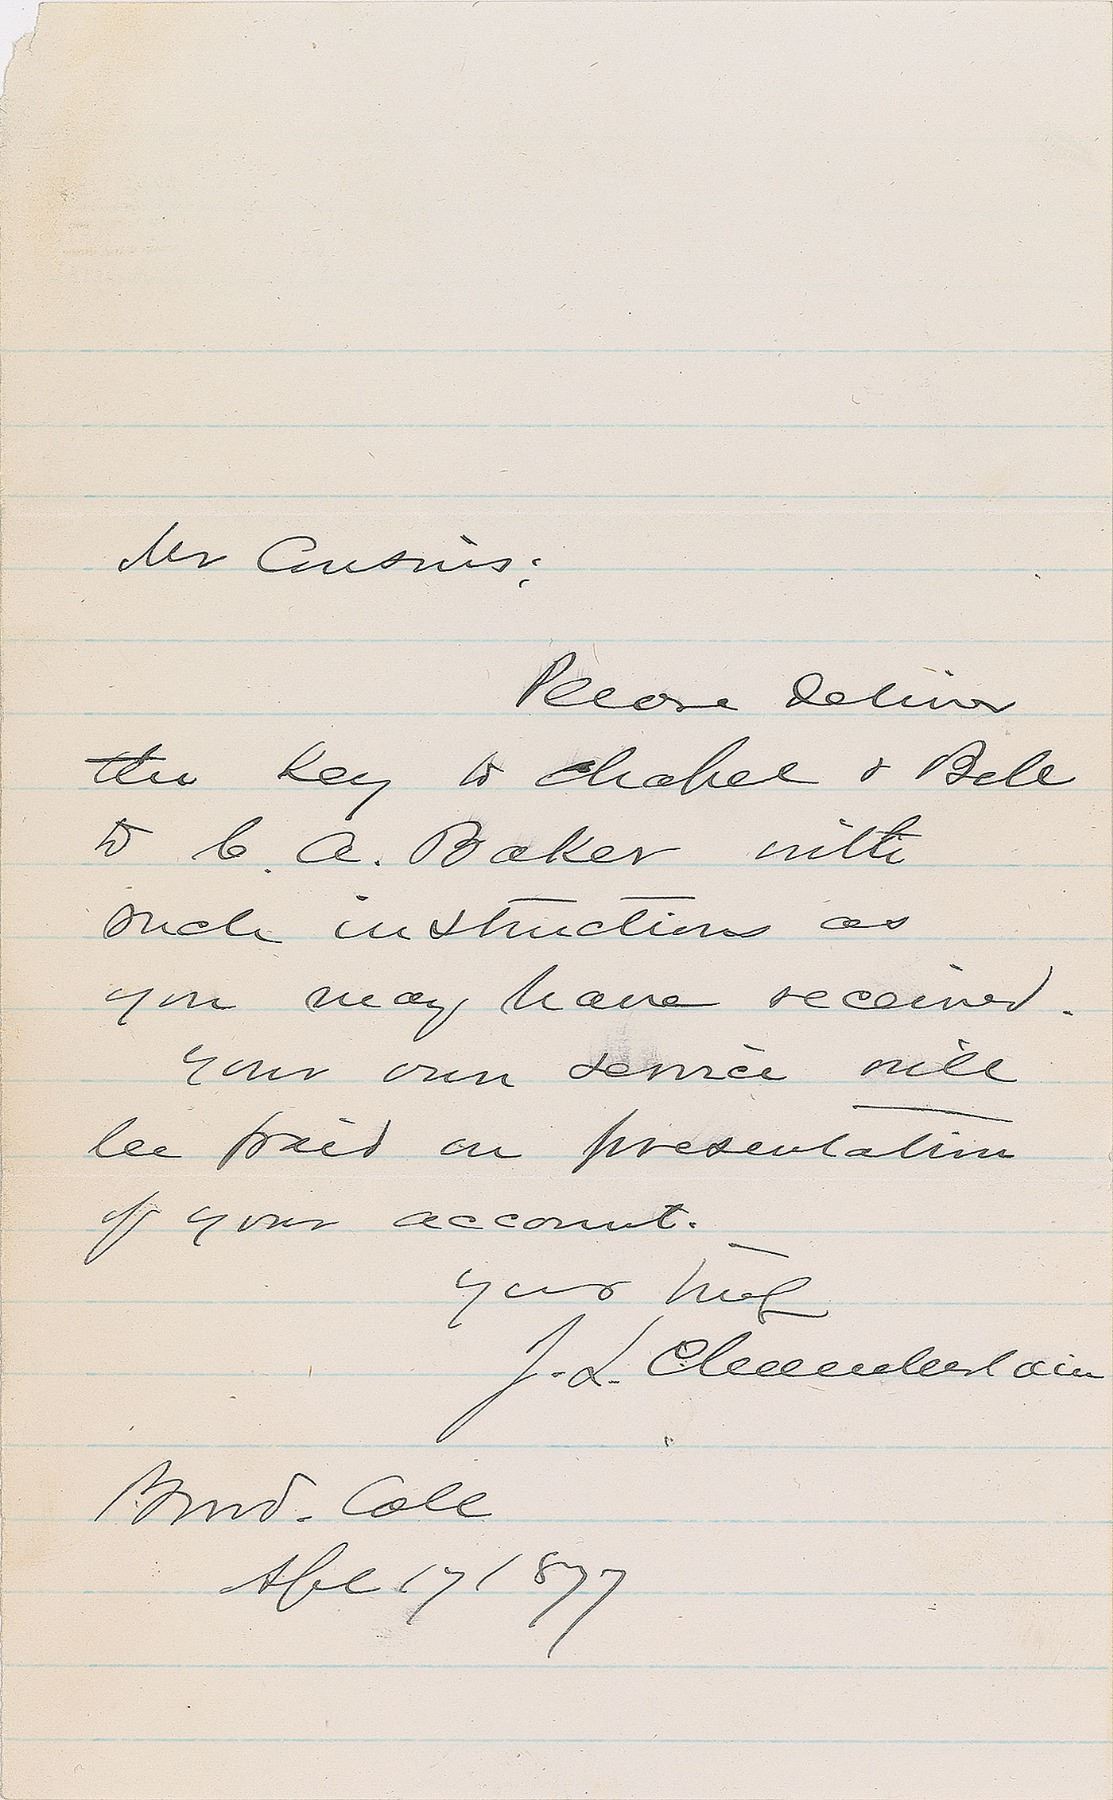 Mr Cousins;
Please deliver
the key to chapel & Bell
to C. A. Baker with
such instructions as
you may have received.
Your own service will
be paid on presentation
of your account.
Yours truly
J. L. Chamberlain
Bowd. Coll
Apl 17 1877